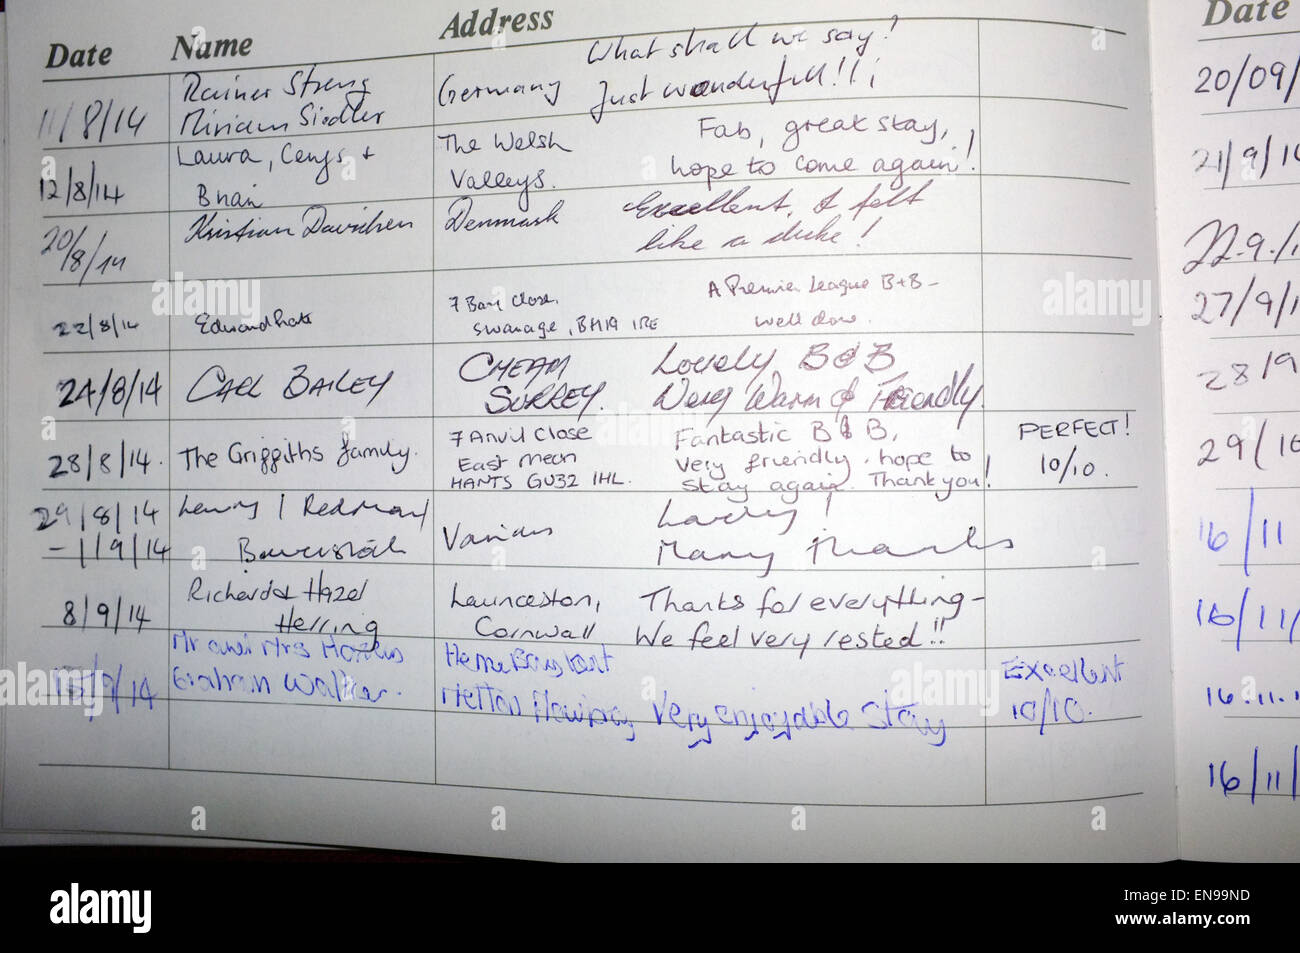 Date Name Address
What shall we say?
11/8/14 Rainer Streng Germany Just wonderful!!¡
Miriam Siedler
12/8/14 Laura, Cerys + The Welsh Fab, great stay,
Brian Valleys. hope to come again!
20/8/14 Kristian Davidsen Denmark Excellent, I felt
like a duke!
22/8/14 7 Close, A Premier League B+B -
Swanage, BH19 1RE Well done.
24/8/14 CARL BAILEY CHEAM Lovely B & B
SURREY. Very Warm & Friendly.
28/8/14. The Griffiths family. 7 Anvil Close Fantastic B & B, PERFECT!
East Meon very friendly, hope to 10/10.
HANTS GU32 1HL. stay again. Thank you!
29/8/14 / Redman Various
- 1/9/14 Many thanks
8/9/14 Richard & Hazel Launceston, Thanks for everything -
Herring Cornwall We feel very rested!!
Mr and Mrs Herne Bay Kent Excellent
/9/14 Graham Walker. Very enjoyable stay 10/10.
Date
20/09/
21/9/14
22.9./1
27/9/1
28/9
29/10
16/11
16/11/
16.11.
16/11/
a alamy
alamy
Image ID: EN99ND
www.alamy.com